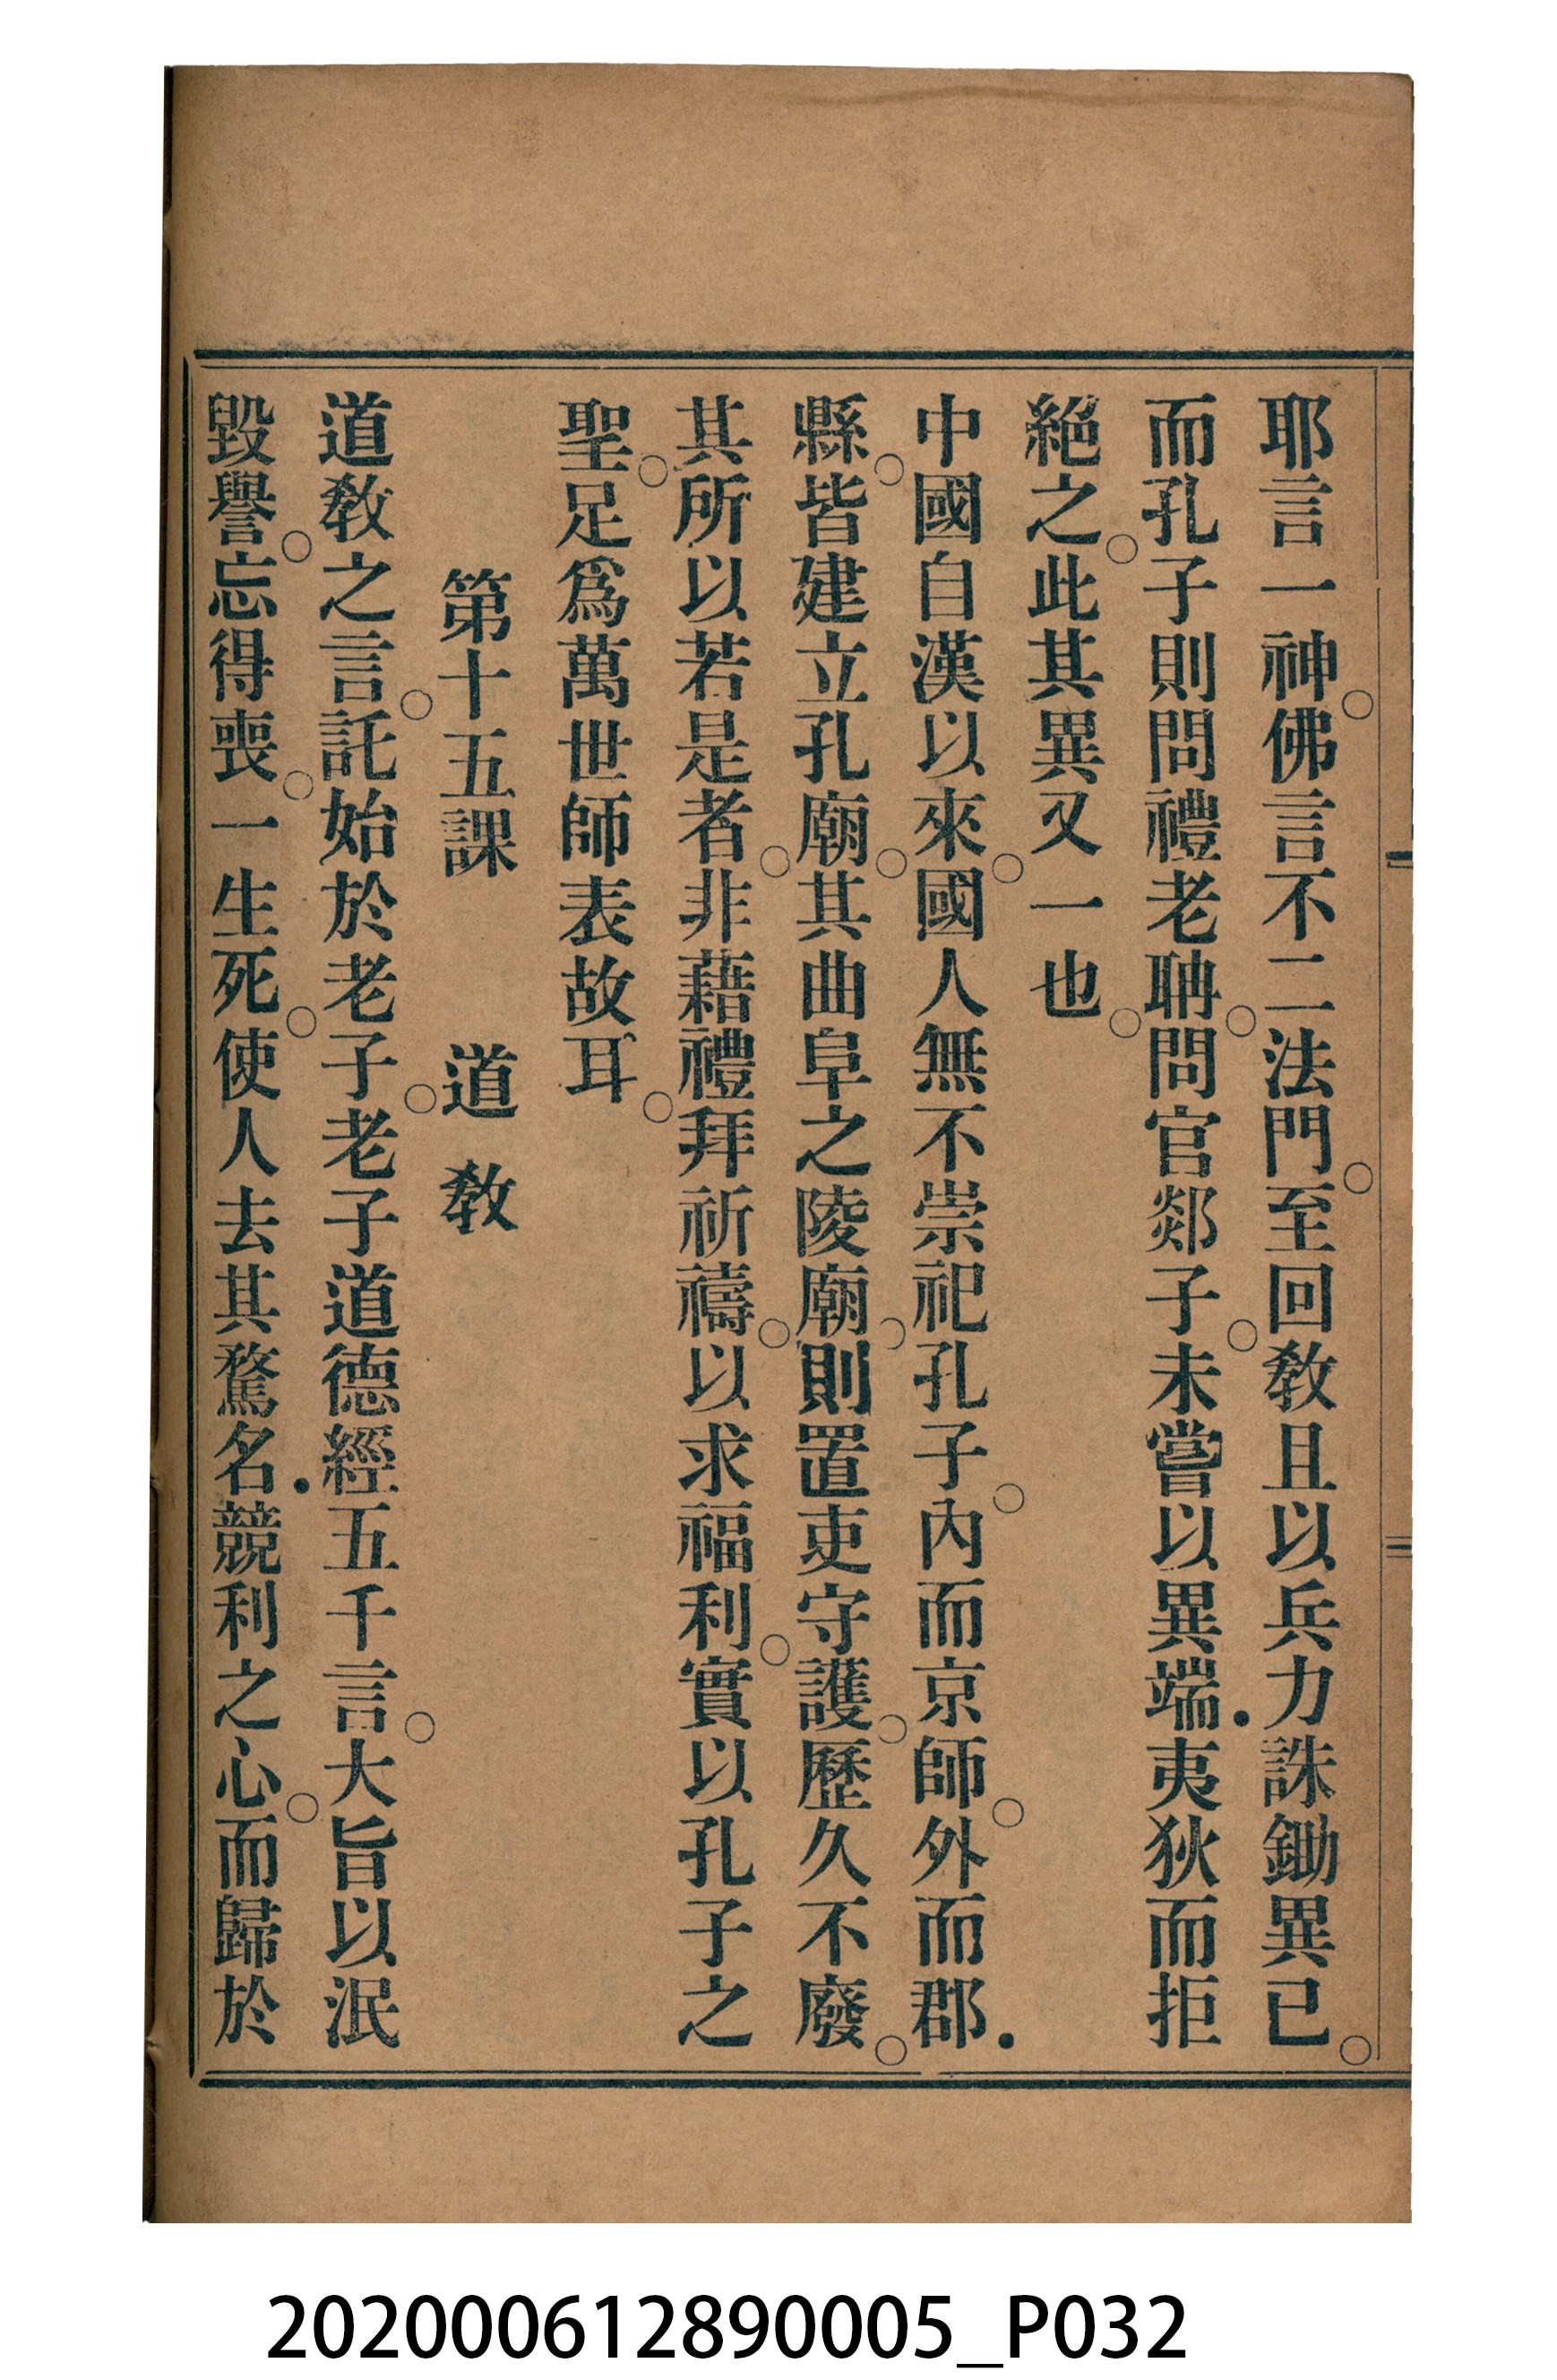 耶言一神。佛言不二法門。至回教且以兵力誅鋤異已。
而孔子則問禮老聃。問官郯子。未嘗以異端．夷狄而拒
絕之。此其異又一也。
中國自漢以來。國人無不崇祀孔子。內而京師。外而郡．
縣。皆建立孔廟。其曲阜之陵廟。則置吏守護。歷久不廢。
其所以若是者。非藉禮拜祈禱。以求福利。實以孔子之
聖。足爲萬世師表故耳。
第十五課　道教
道教之言。託始於老子。老子道德經五千言。大旨以泯
毀譽。忘得喪。一生死。使人去其騖名．競利之心。而歸於
202000612890005_P032